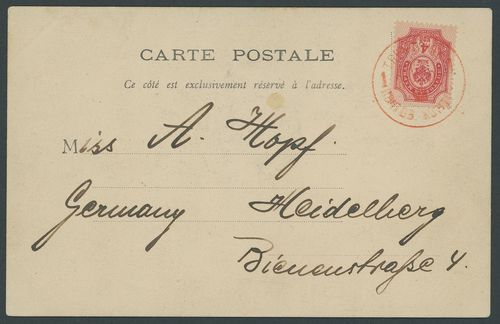 CARTE POSTALE
Ce côté est exclusivement réservé à l'adresse.
Miss A. Hopf.
Germany Heidelberg
Bienenstraße 4.
4